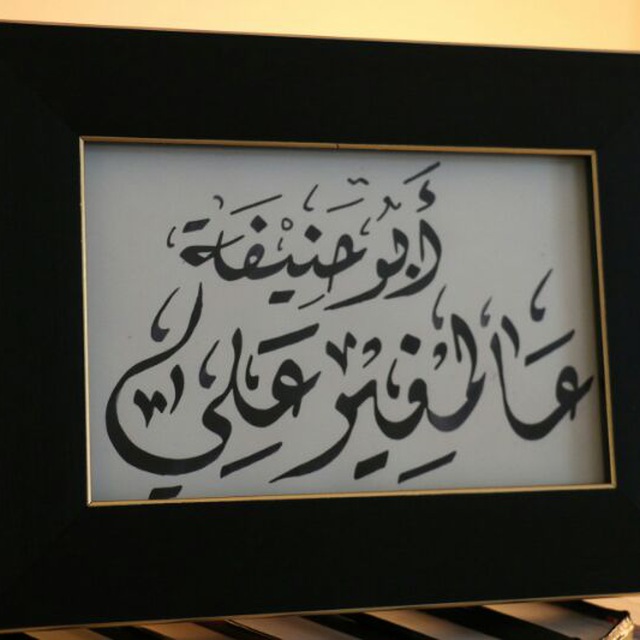 أَبُو حَنِيفَة
عَالمغِير عَلِي